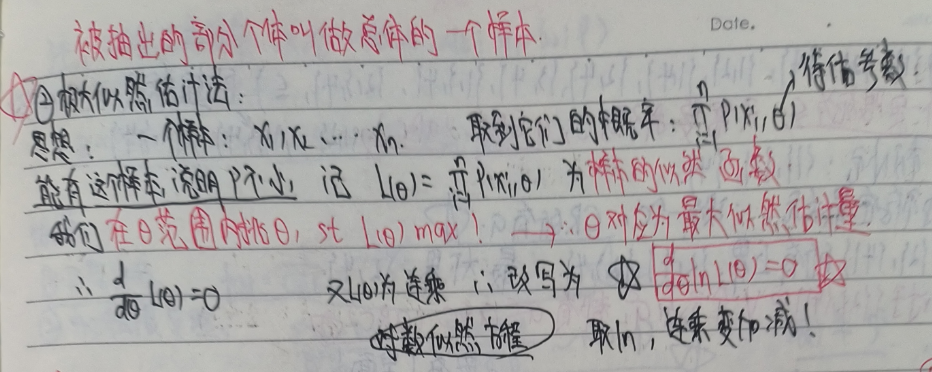 Date.
被抽出的部分个体叫做总体的一个样本.
② 极大似然估计法: 待估参数!
思想: 一个样本 x₁, x₂ ... xₙ. 取到它们的概率: ∏ᵢ₌₁ⁿ P(xᵢ, θ)
能有这个样本, 说明P不小, 记 L(θ) = ∏ᵢ₌₁ⁿ P(xᵢ, θ) 为样本的似然函数
我们在θ范围内挑θ, st L(θ) max! → ∴ θ对应为最大似然估计量
∴ d/dθ L(θ) = 0 又L(θ)为连乘 ∴ 改写为 ☆ d/dθ ln L(θ) = 0 ☆
对数似然方程 取ln, 连乘变加减!